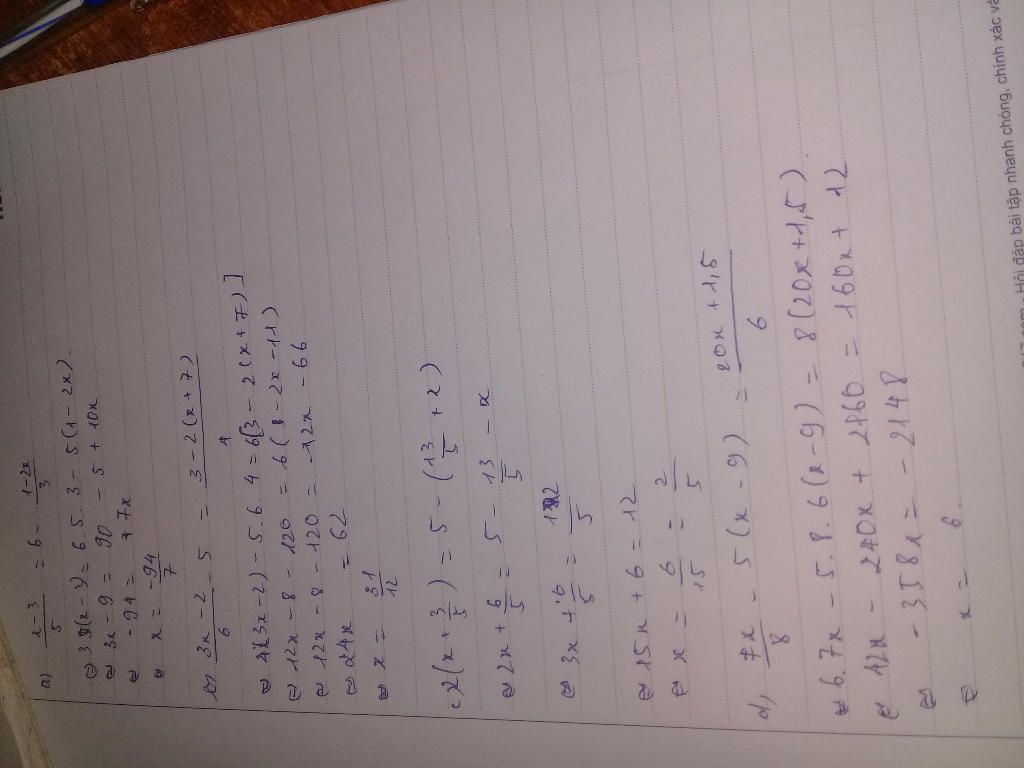 a) \frac{x-3}{5} = 6 - \frac{1-2x}{3}
⇔ 3(x-3) = 6.5.3 - 5(1-2x).
⇔ 3x - 9 = 90 - 5 + 10x
⇔ - 94 = 7x
⇔ x = \frac{-94}{7}
b) \frac{3x-2}{6} - 5 = \frac{3-2(x+7)}{4}
⇔ 4(3x-2) - 5.6.4 = 6[3-2(x+7)]
⇔ 12x - 8 - 120 = 6(3-2x-11)
⇔ 12x - 8 - 120 = -12x - 66
⇔ 24x = 62
⇔ x = \frac{31}{12}
c) 2(x + \frac{3}{5}) = 5 - (\frac{13}{5} + x)
⇔ 2x + \frac{6}{5} = 5 - \frac{13}{5} - x
⇔ 3x + \frac{6}{5} = \frac{12}{5}
⇔ 15x + 6 = 12
⇔ x = \frac{6}{15} = \frac{2}{5}
d, \frac{7x}{8} - 5(x-9) = \frac{20x+1,5}{6}
⇔ 6.7x - 5.8.6(x-9) = 8(20x+1,5).
⇔ 42x - 240x + 2160 = 160x + 12
⇔ - 358x = - 2148
⇔ x = 6.
Hỏi đáp bài tập nhanh chóng, chính xác và